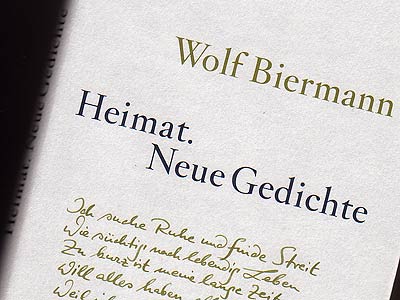 Wolf Biermann
Heimat.
Neue Gedichte
Ich suche Ruhe und finde Streit
Wie süchtig nach lebendig Leben
Zu kurz ist meine lange Zeit
Will alles haben
Weil
Heimat. Neue Gedichte